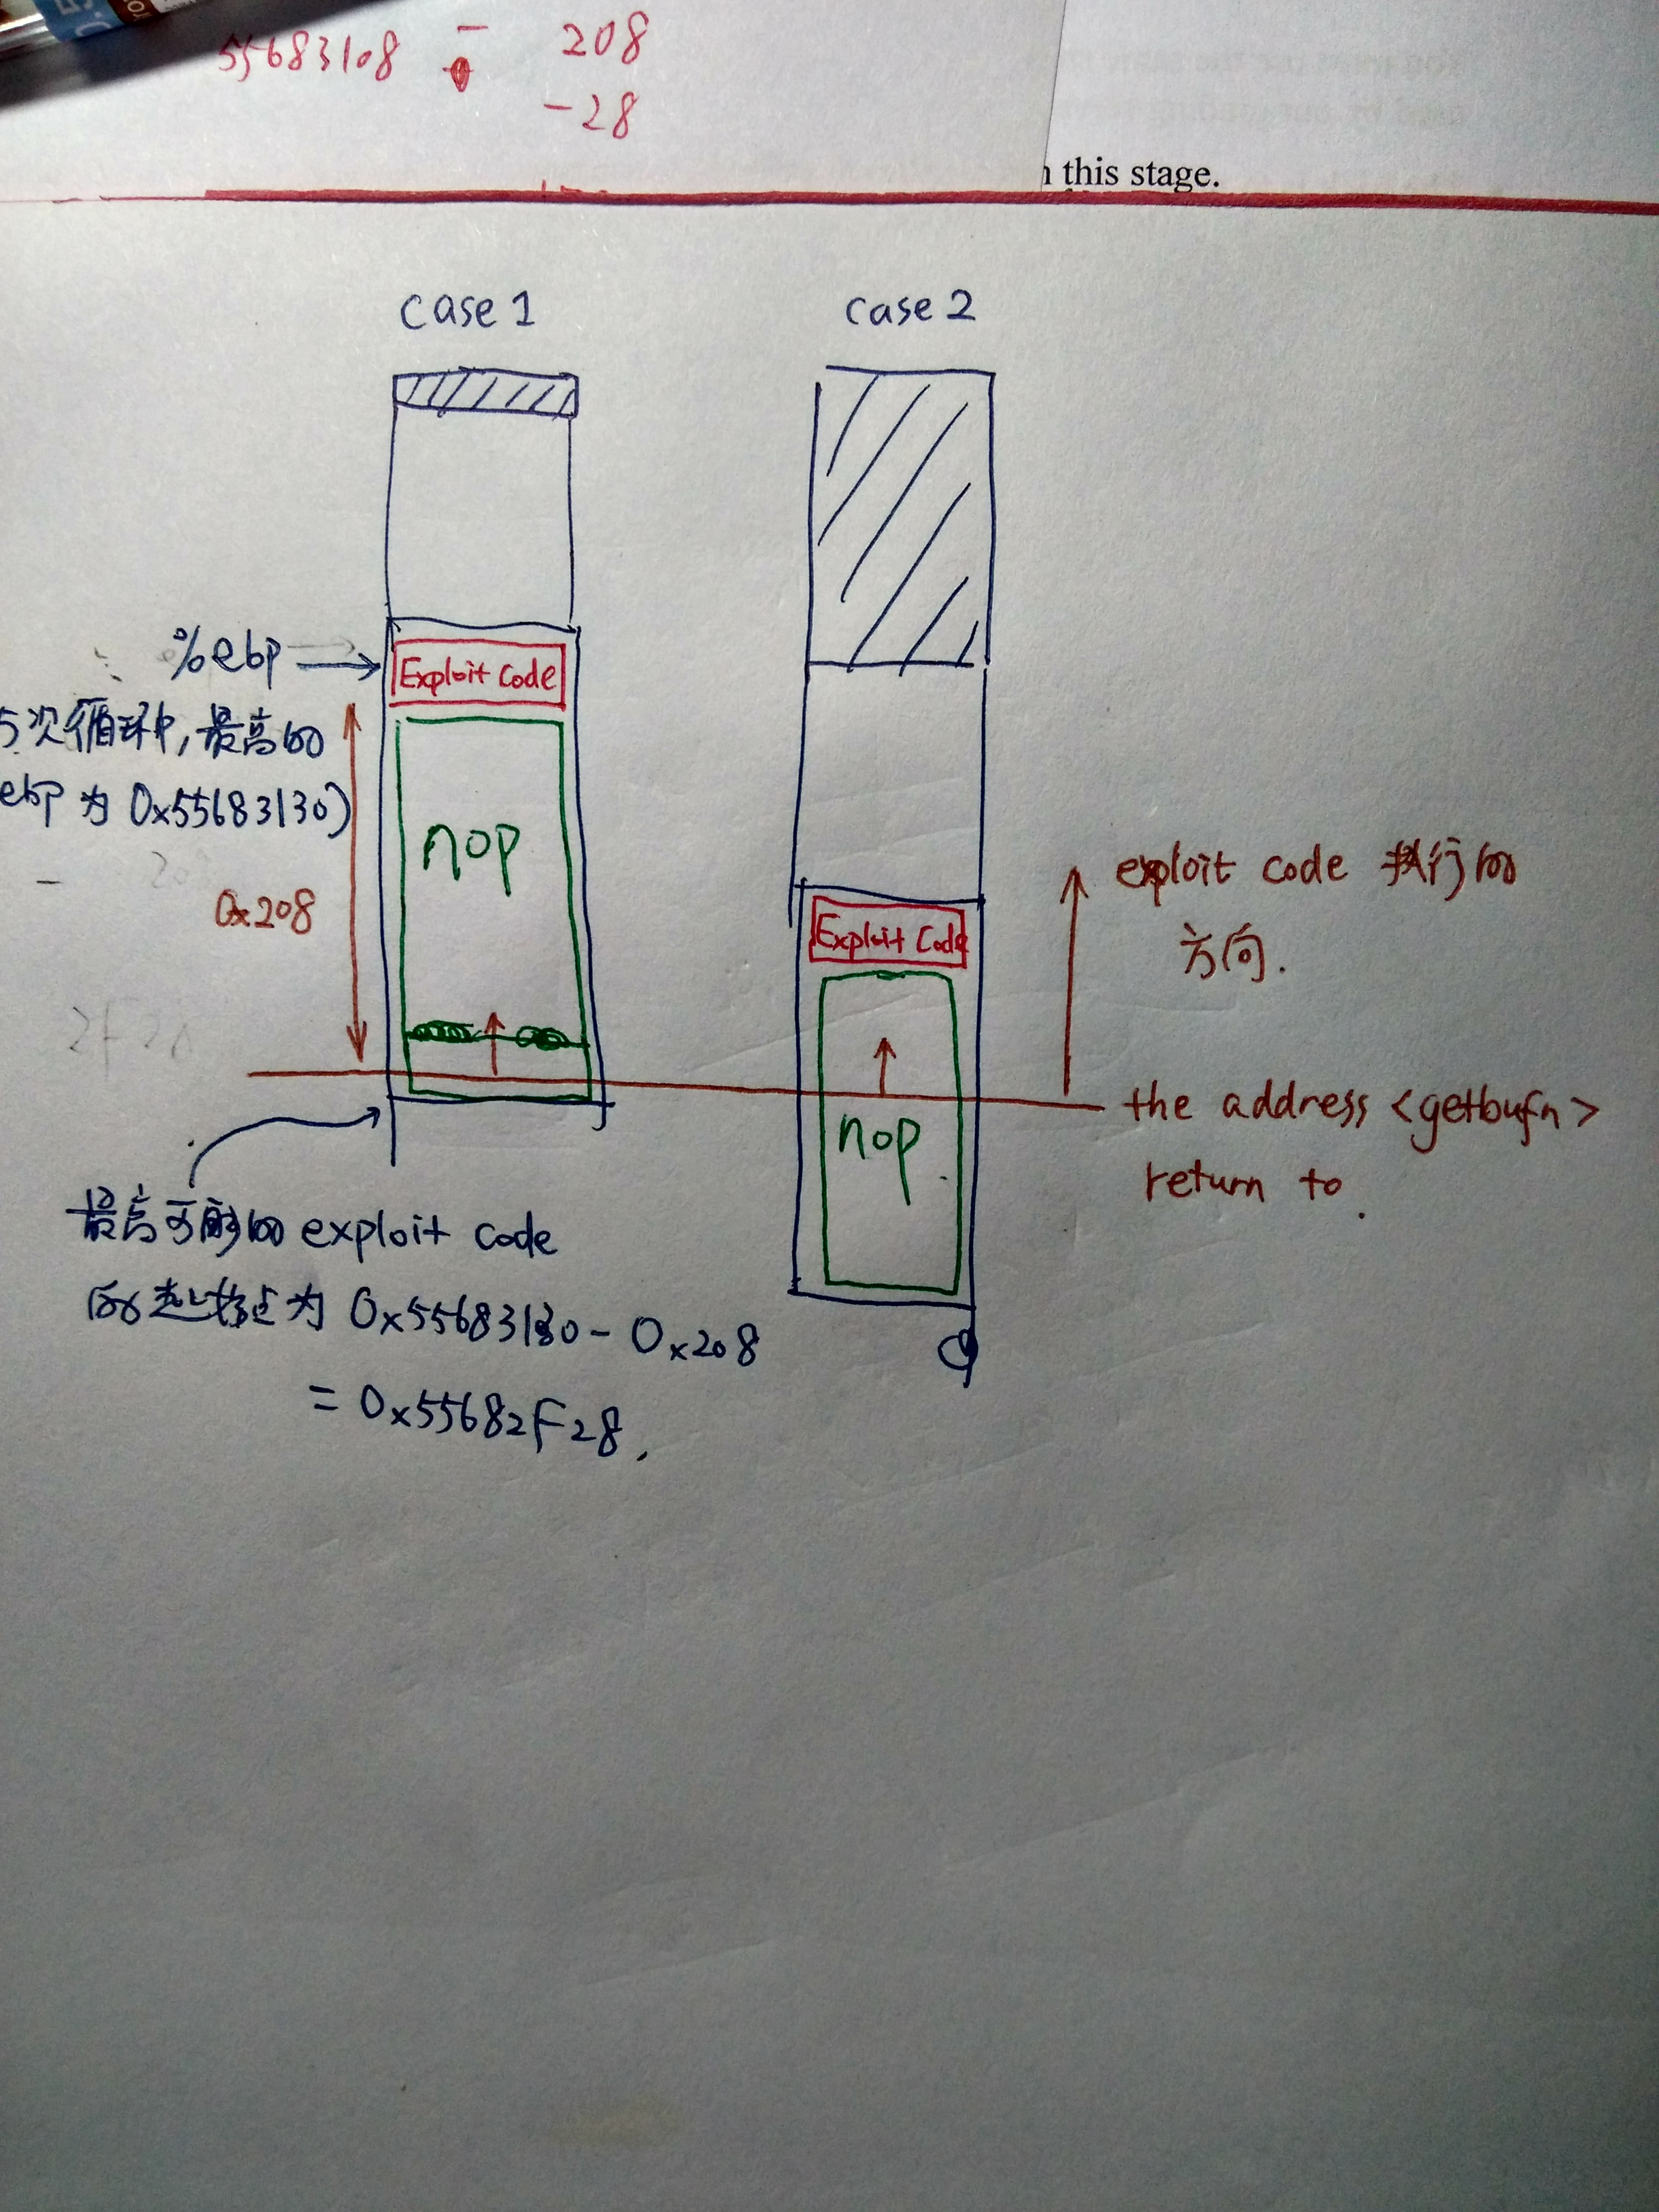 55683108 - 208
-28
this stage.
case 1
case 2
%ebp
Exploit Code
5次循环中,最高的
ebp 为 0x55683130)
nop
0x208
Exploit Code
exploit code 执行的
方向.
nop
the address <getbufn>
return to.
最高可能的 exploit code
的起始点为 0x55683130 - 0x208
= 0x55682F28.